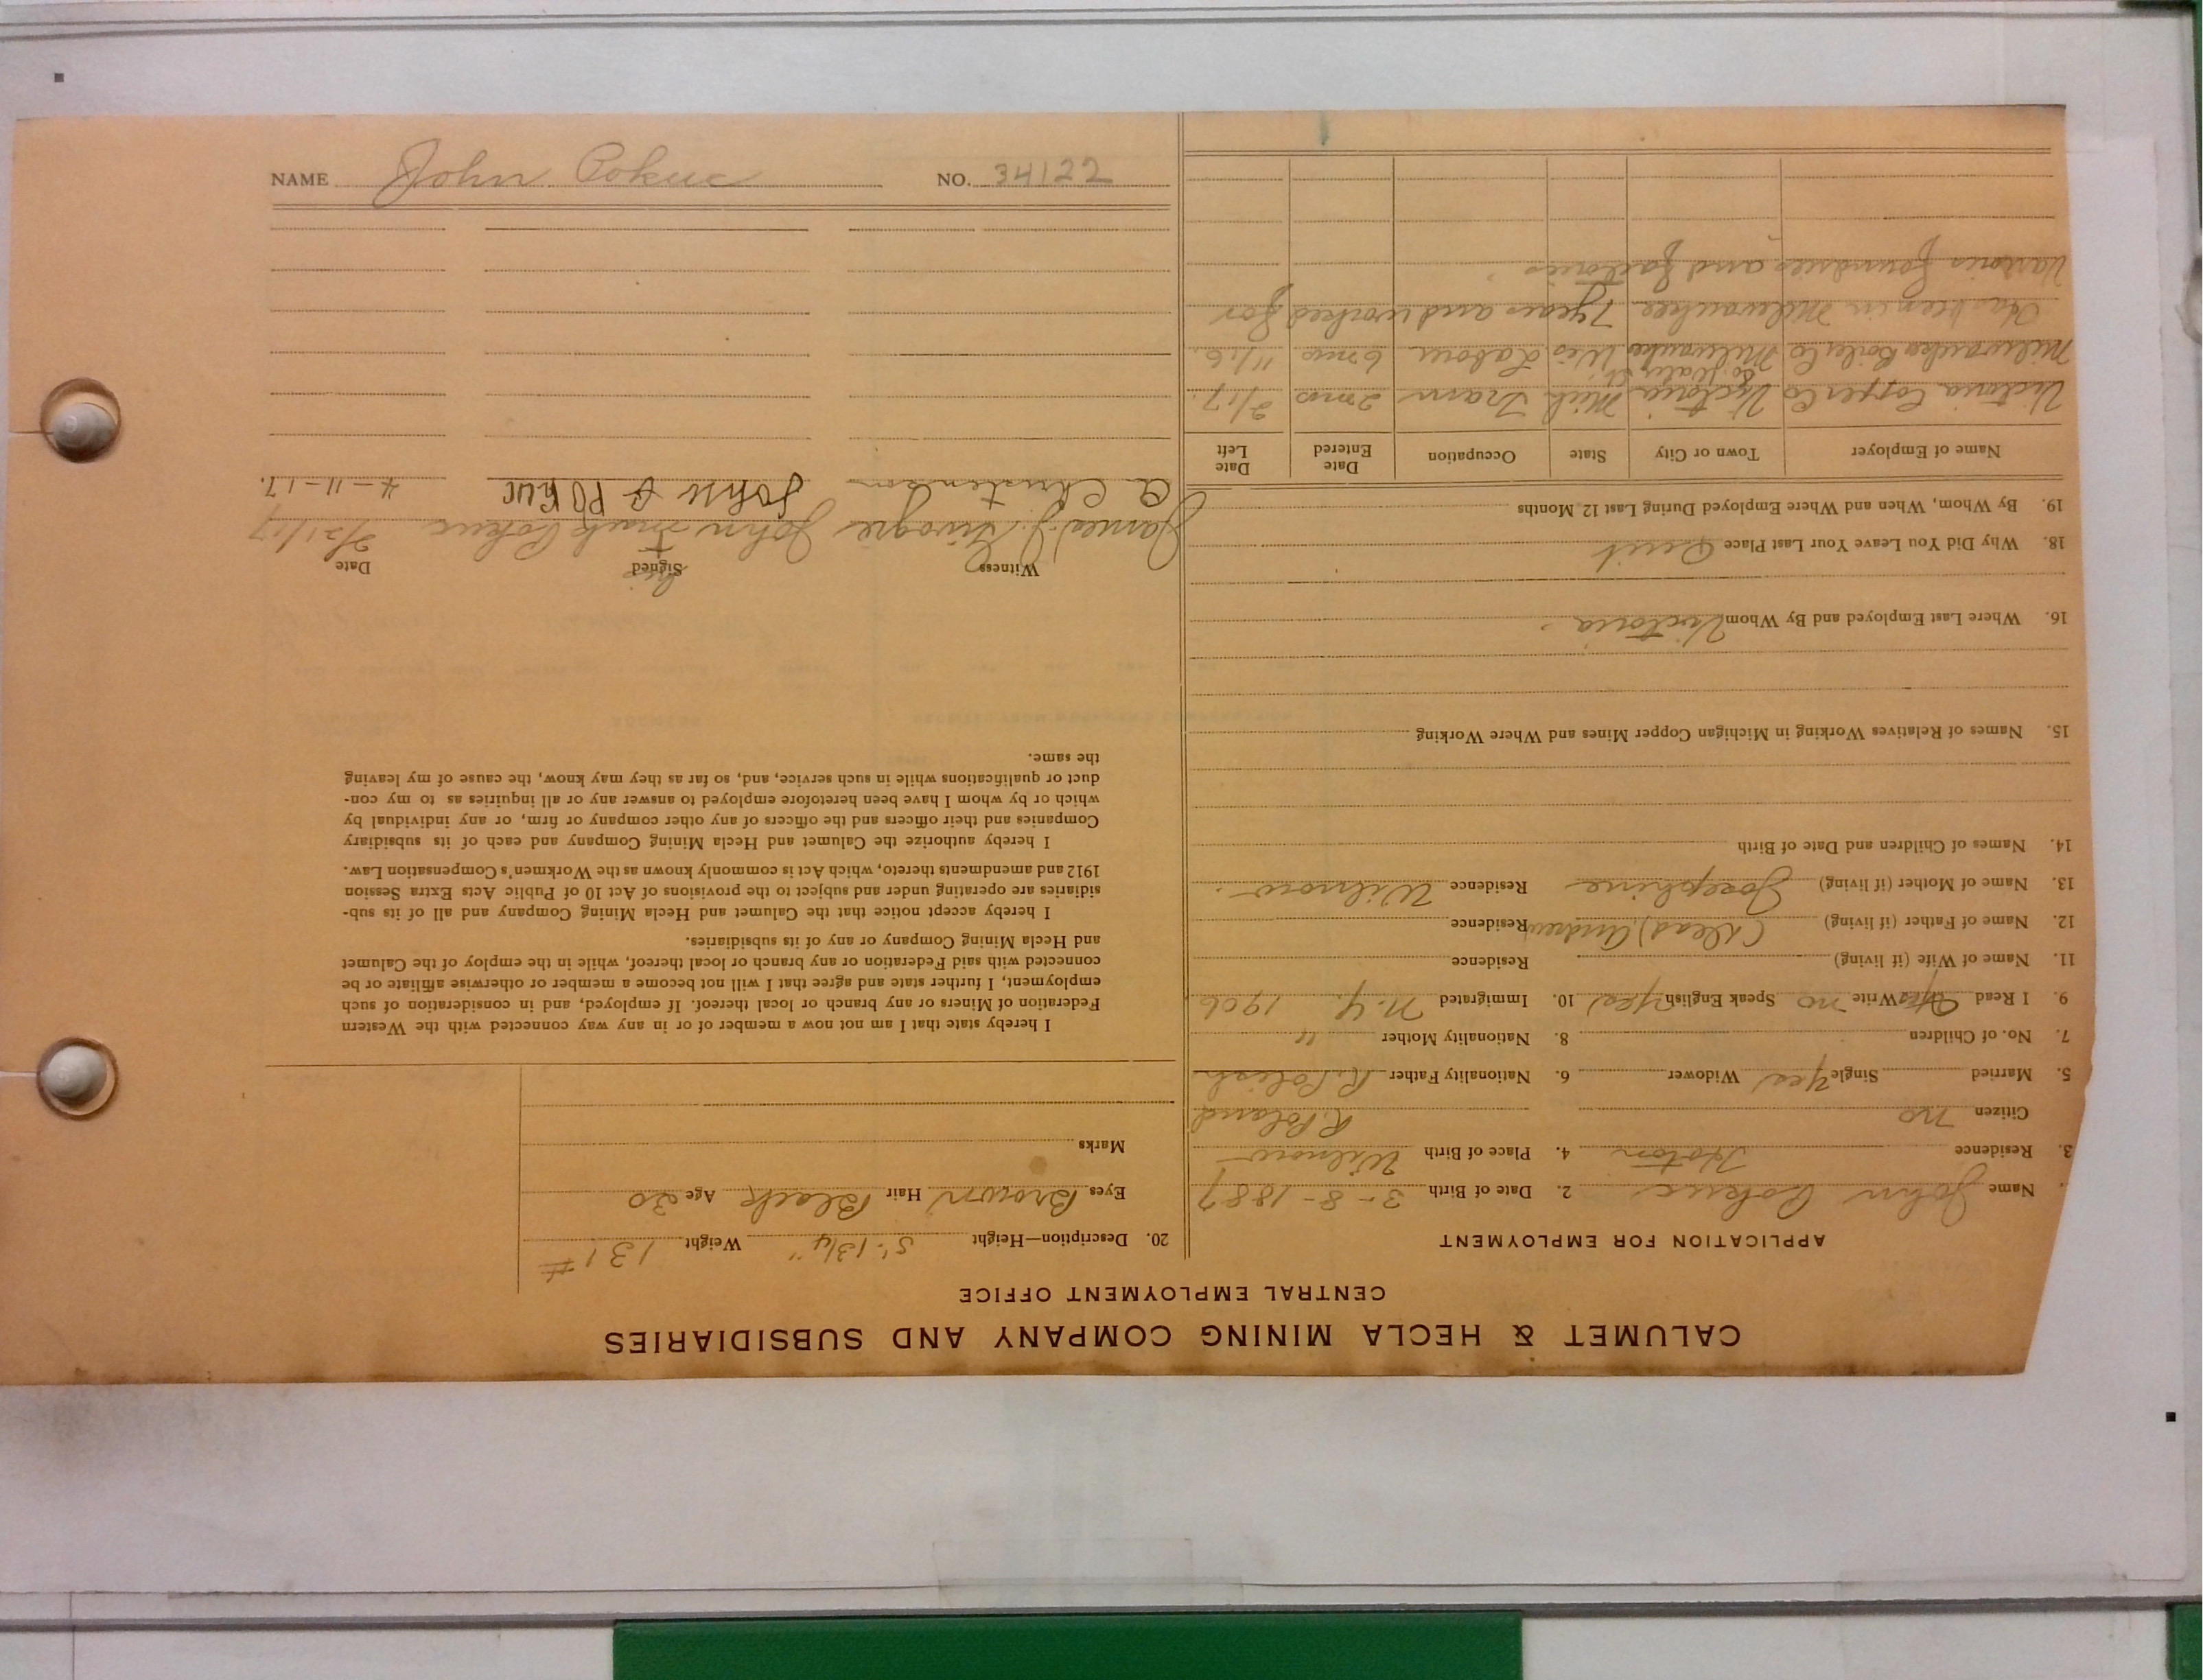 CALUMET & HECLA MINING COMPANY AND SUBSIDIARIES
CENTRAL EMPLOYMENT OFFICE
APPLICATION FOR EMPLOYMENT
Name John Pokuc 2. Date of Birth 3-8-1887
3. Residence 4. Place of Birth Wilnow
Citizen no R. Poland
5. Married Single Yes Widower 6. Nationality Father R. Polish
7. No. of Children 8. Nationality Mother "
9. I Read Yes Write no Speak English Yes 10. Immigrated N.Y. 1906
11. Name of Wife (if living) Residence
12. Name of Father (if living) (Dead) Andrew Residence
13. Name of Mother (if living) Josephine Residence Wilnow
14. Names of Children and Date of Birth
15. Names of Relatives Working in Michigan Copper Mines and Where Working
16. Where Last Employed and By Whom Victoria
18. Why Did You Leave Your Last Place Quit
19. By Whom, When and Where Employed During Last 12 Months
Name of Employer Town or City State Occupation Date Entered Date Left
Victoria Copper Co Victoria Mich Tram 2 mos 2/17
So. Water St.
Milwaukee Boiler Co Milwaukee Wis Labour 6 mos 11/16
Has been in Milwaukee 7 years and worked for
Various foundries and factories
20. Description—Height 5' 1 3/4" Weight 131 #
Eyes Brown Hair Black Age 30
Marks
I hereby state that I am not now a member of or in any way connected with the Western
Federation of Miners or any branch or local thereof. If employed, and in consideration of such
employment, I further state and agree that I will not become a member or otherwise affiliate or be
connected with said Federation or any branch or local thereof, while in the employ of the Calumet
and Hecla Mining Company or any of its subsidiaries.
I hereby accept notice that the Calumet and Hecla Mining Company and all of its sub-
sidiaries are operating under and subject to the provisions of Act 10 of Public Acts Extra Session
1912 and amendments thereto, which Act is commonly known as the Workmen's Compensation Law.
I hereby authorize the Calumet and Hecla Mining Company and each of its subsidiary
Companies and their officers and the officers of any other company or firm, or any individual by
which or by whom I have been heretofore employed to answer any or all inquiries as to my con-
duct or qualifications while in such service, and, so far as they may know, the cause of my leaving
the same.
Witness Signed Date
his
James J. John + mark Pokuc 2/21/17
A Christenson John Pokuc 4-11-17.
NAME John Pokuc NO. 34122